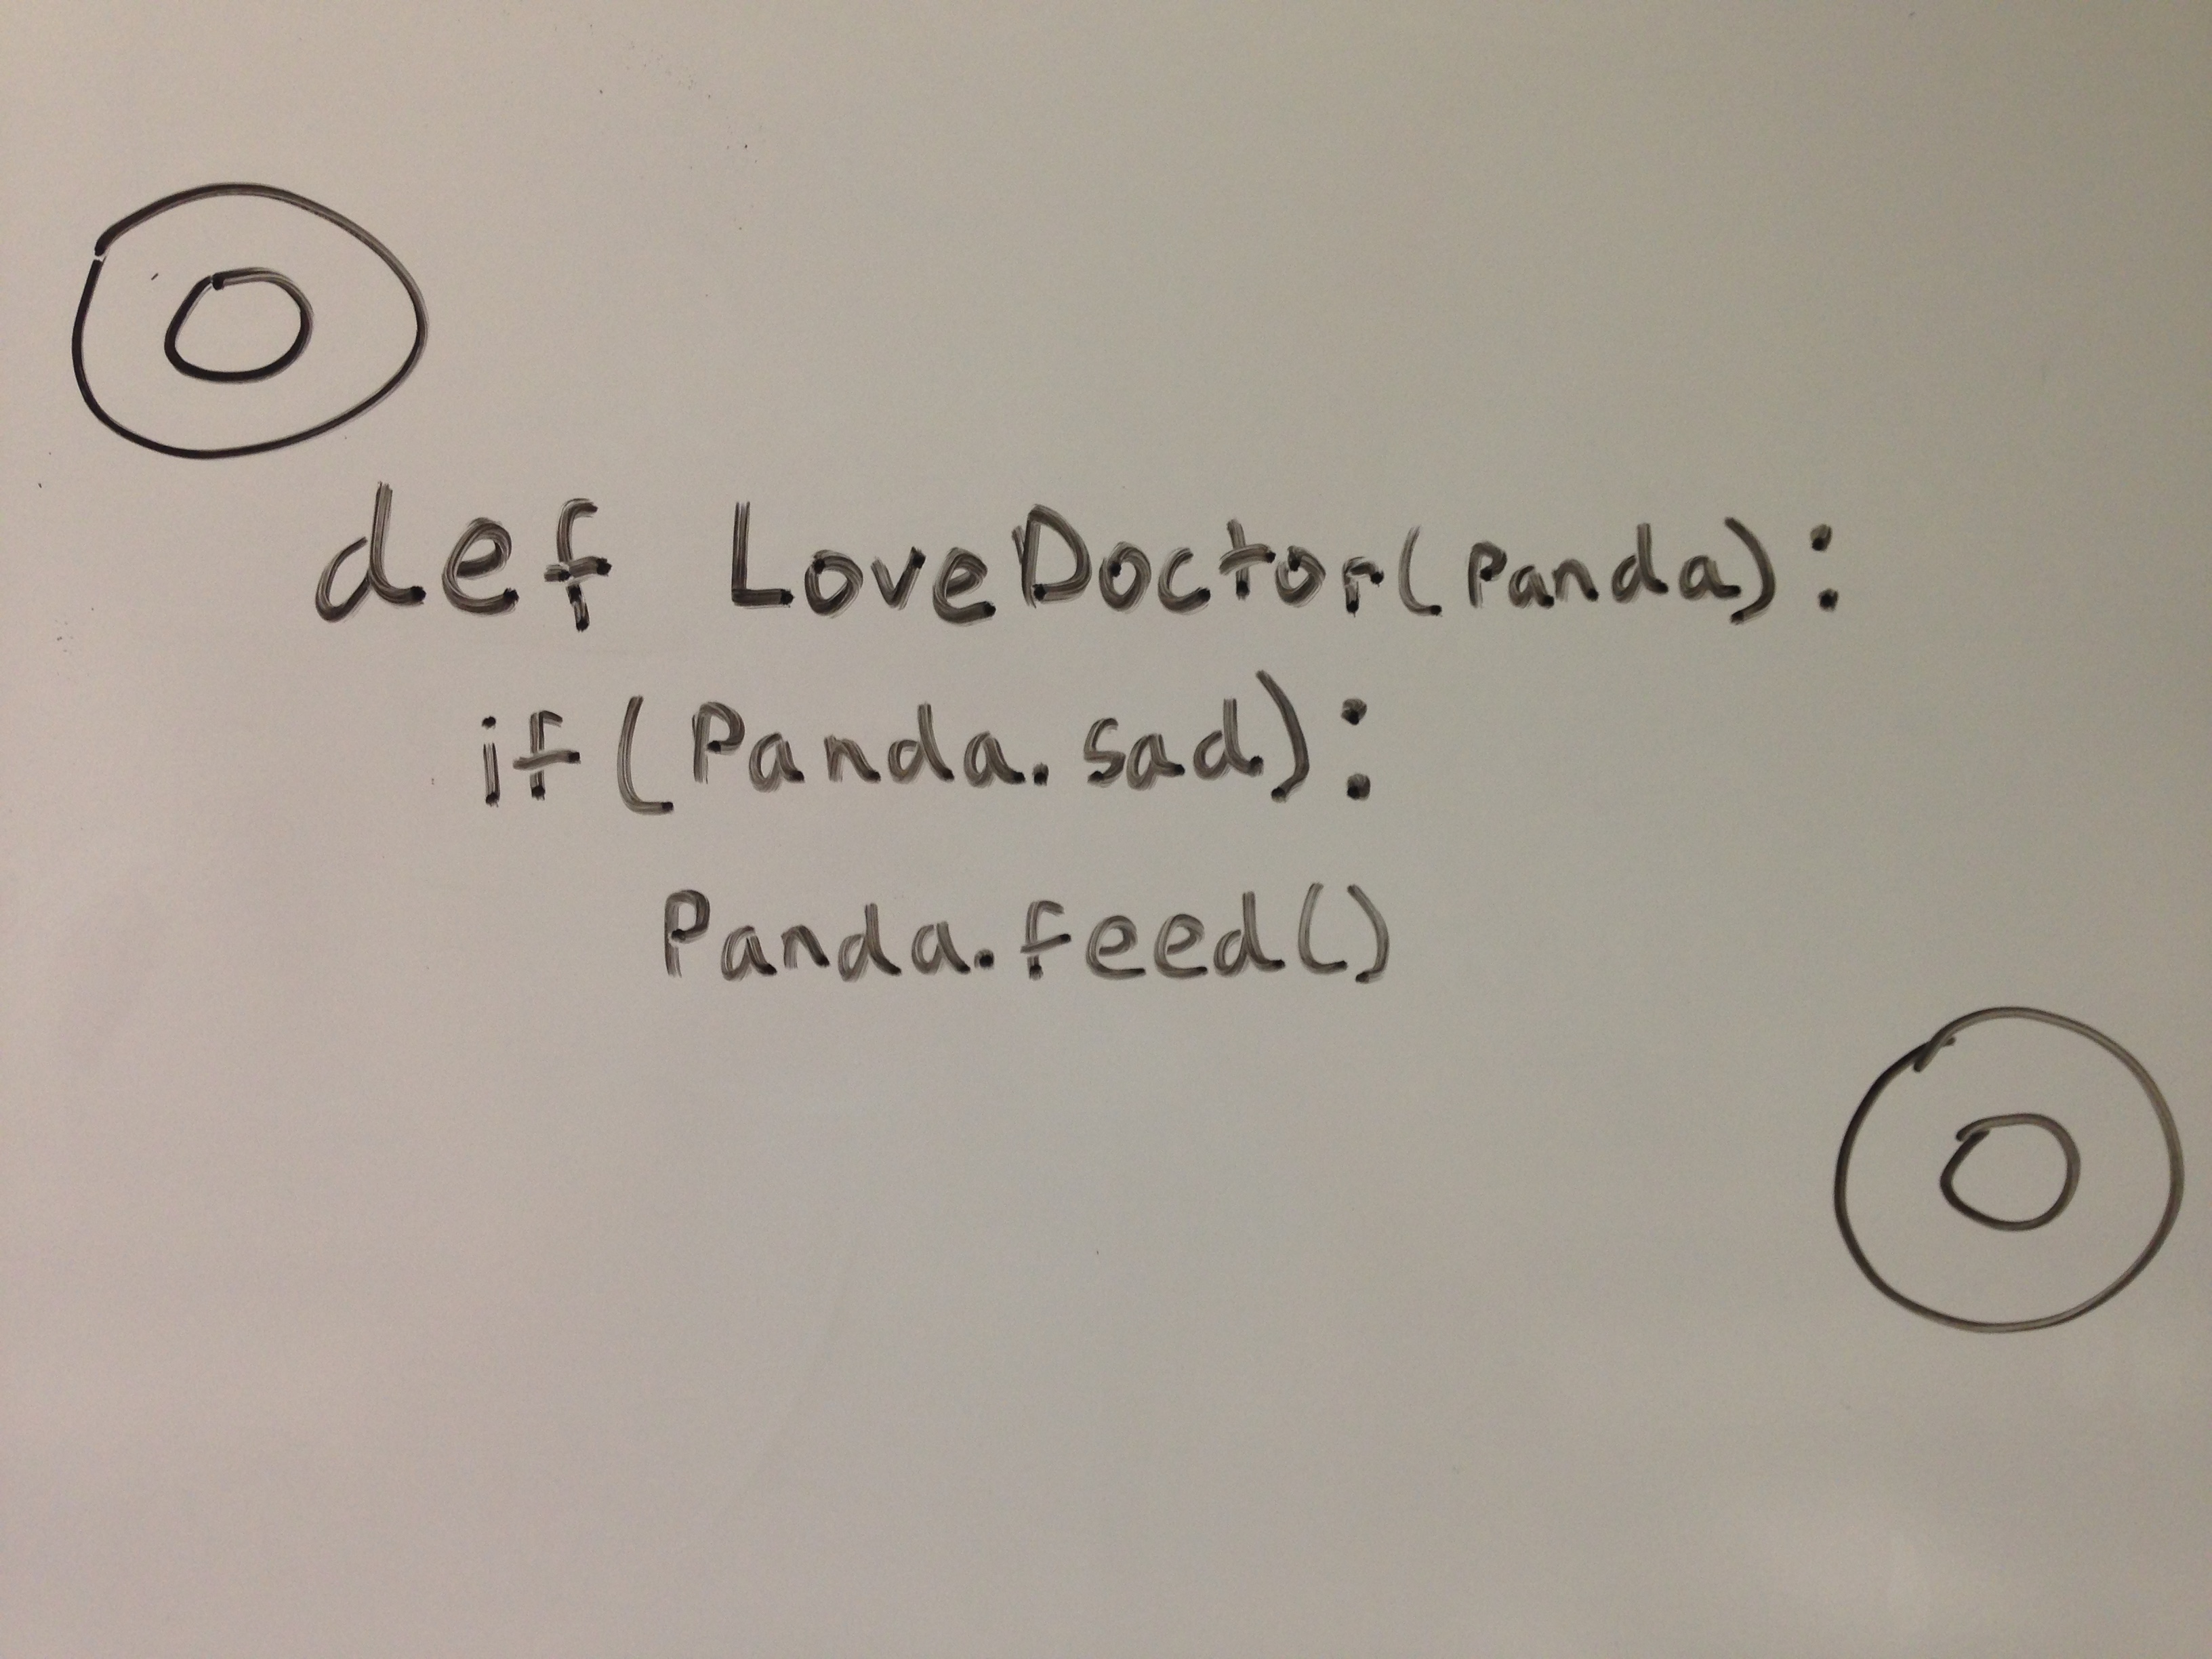 def LoveDoctor(Panda):
if(Panda.sad):
Panda.feed()